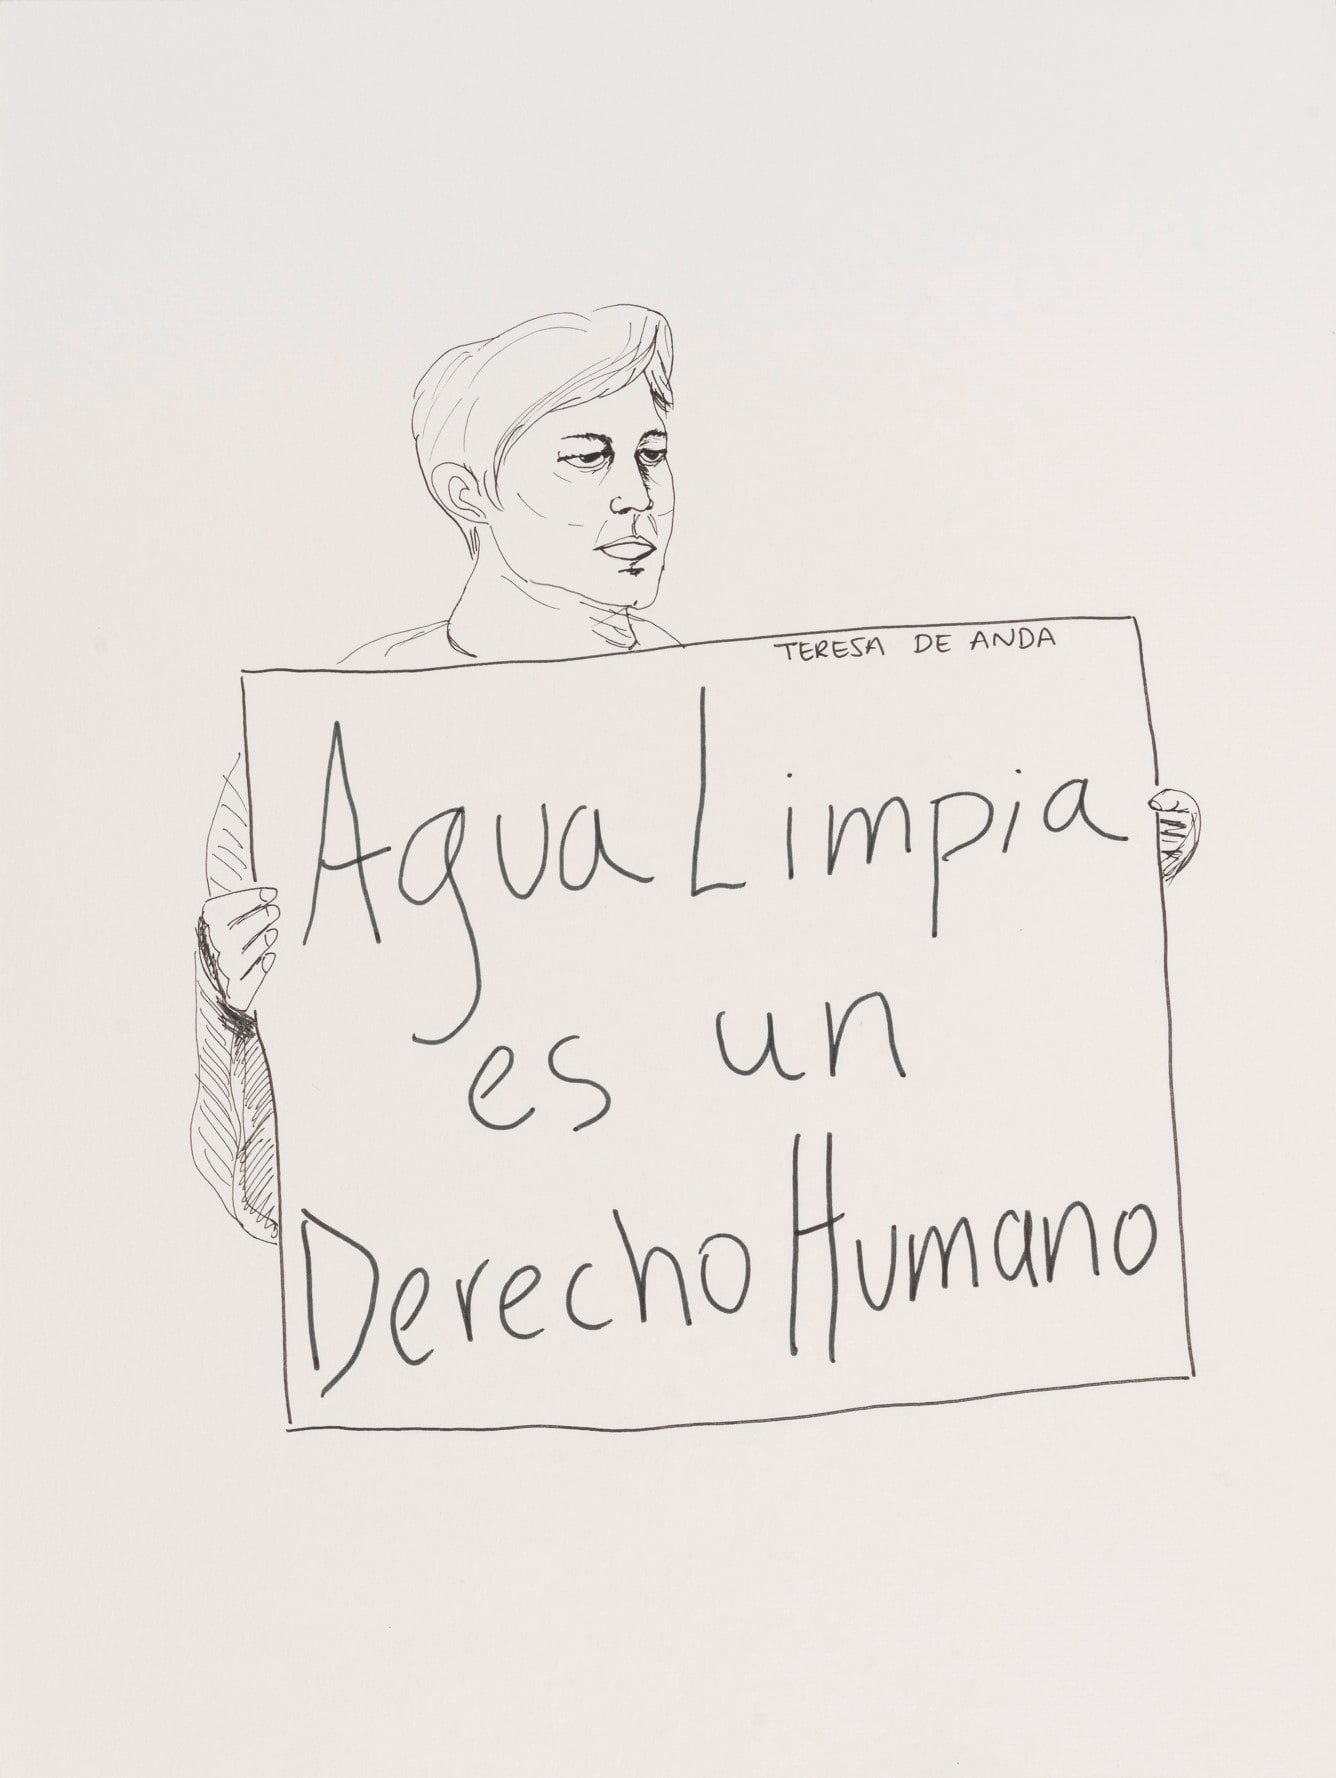 TERESA DE ANDA
Agua Limpia
es un
Derecho Humano